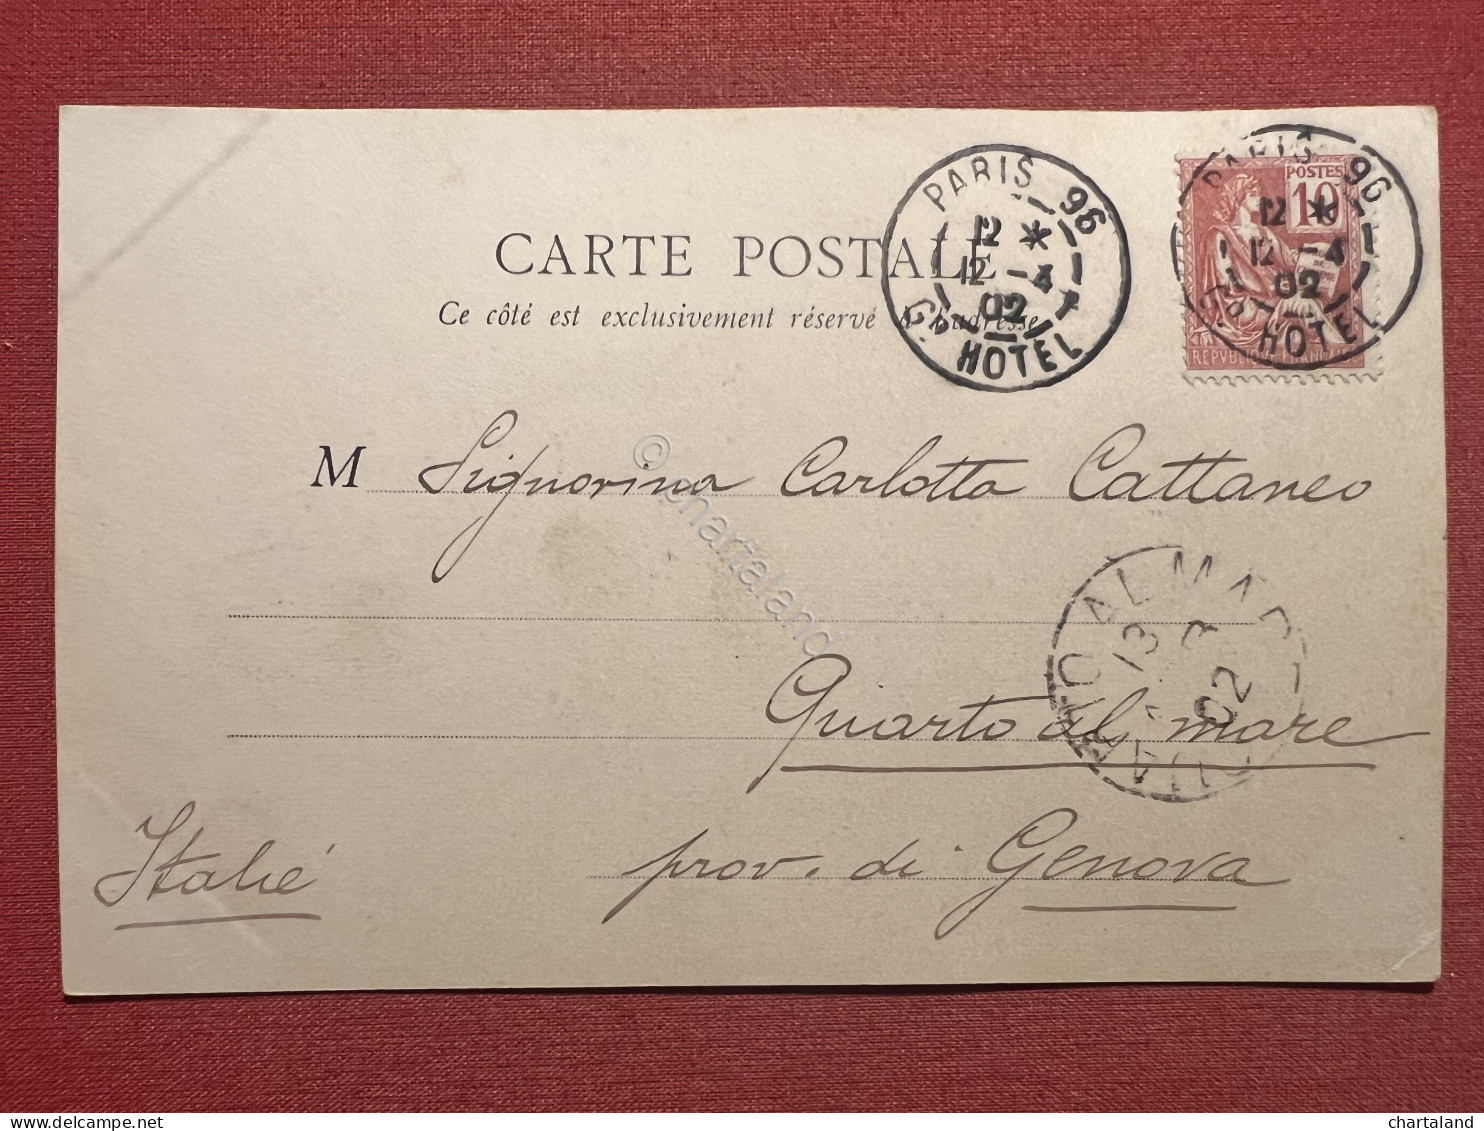 CARTE POSTALE
Ce côté est exclusivement réservé à l'adresse
PARIS 96
12 *
12 -4
02
Gd HOTEL
PARIS 96
12 *
12 -4
02
Gd HOTEL
POSTES
10
REPUBLIQUE FRANÇAISE
M Signorina Carlotta Cattaneo
Quarto al mare
prov. di Genova
Italie
QUARTO AL MARE
13
02
© chartaland
www.delcampe.net
chartaland